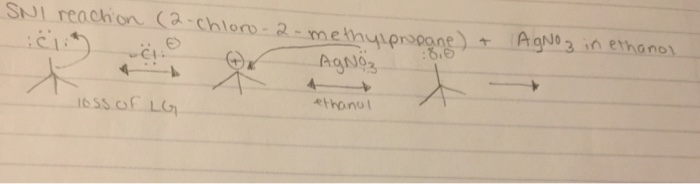 SN1 reaction (2-chloro-2-methylpropane) + AgNO3 in ethanol
:C̈l: -C̈l:⊖ ⊕ AgNO3 :Ö:⊖
loss of LG ethanol